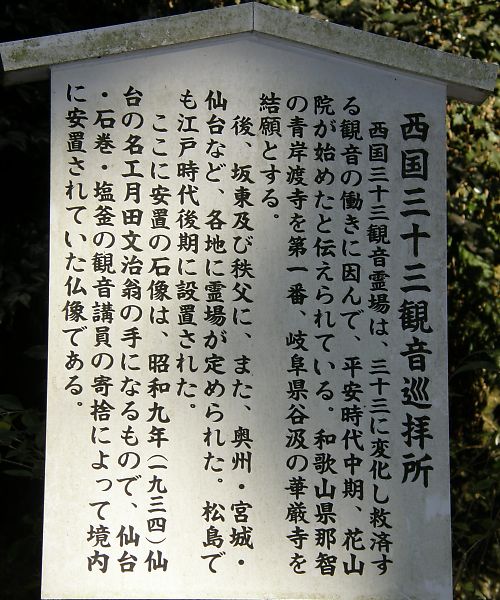 西国三十三観音巡拝所
西国三十三観音霊場は、三十三に変化し救済す
る観音の働きに因んで、平安時代中期、花山
院が始めたと伝えられている。和歌山県那智
の青岸渡寺を第一番、岐阜県谷汲の華厳寺を
結願とする。
後、坂東及び秩父に、また、奥州・宮城・
仙台など、各地に霊場が定められた。松島で
も江戸時代後期に設置された。
ここに安置の石像は、昭和九年(一九三四)仙
台の名工月田文治翁の手になるもので、仙台
・石巻・塩釜の観音講員の寄捨によって境内
に安置されていた仏像である。